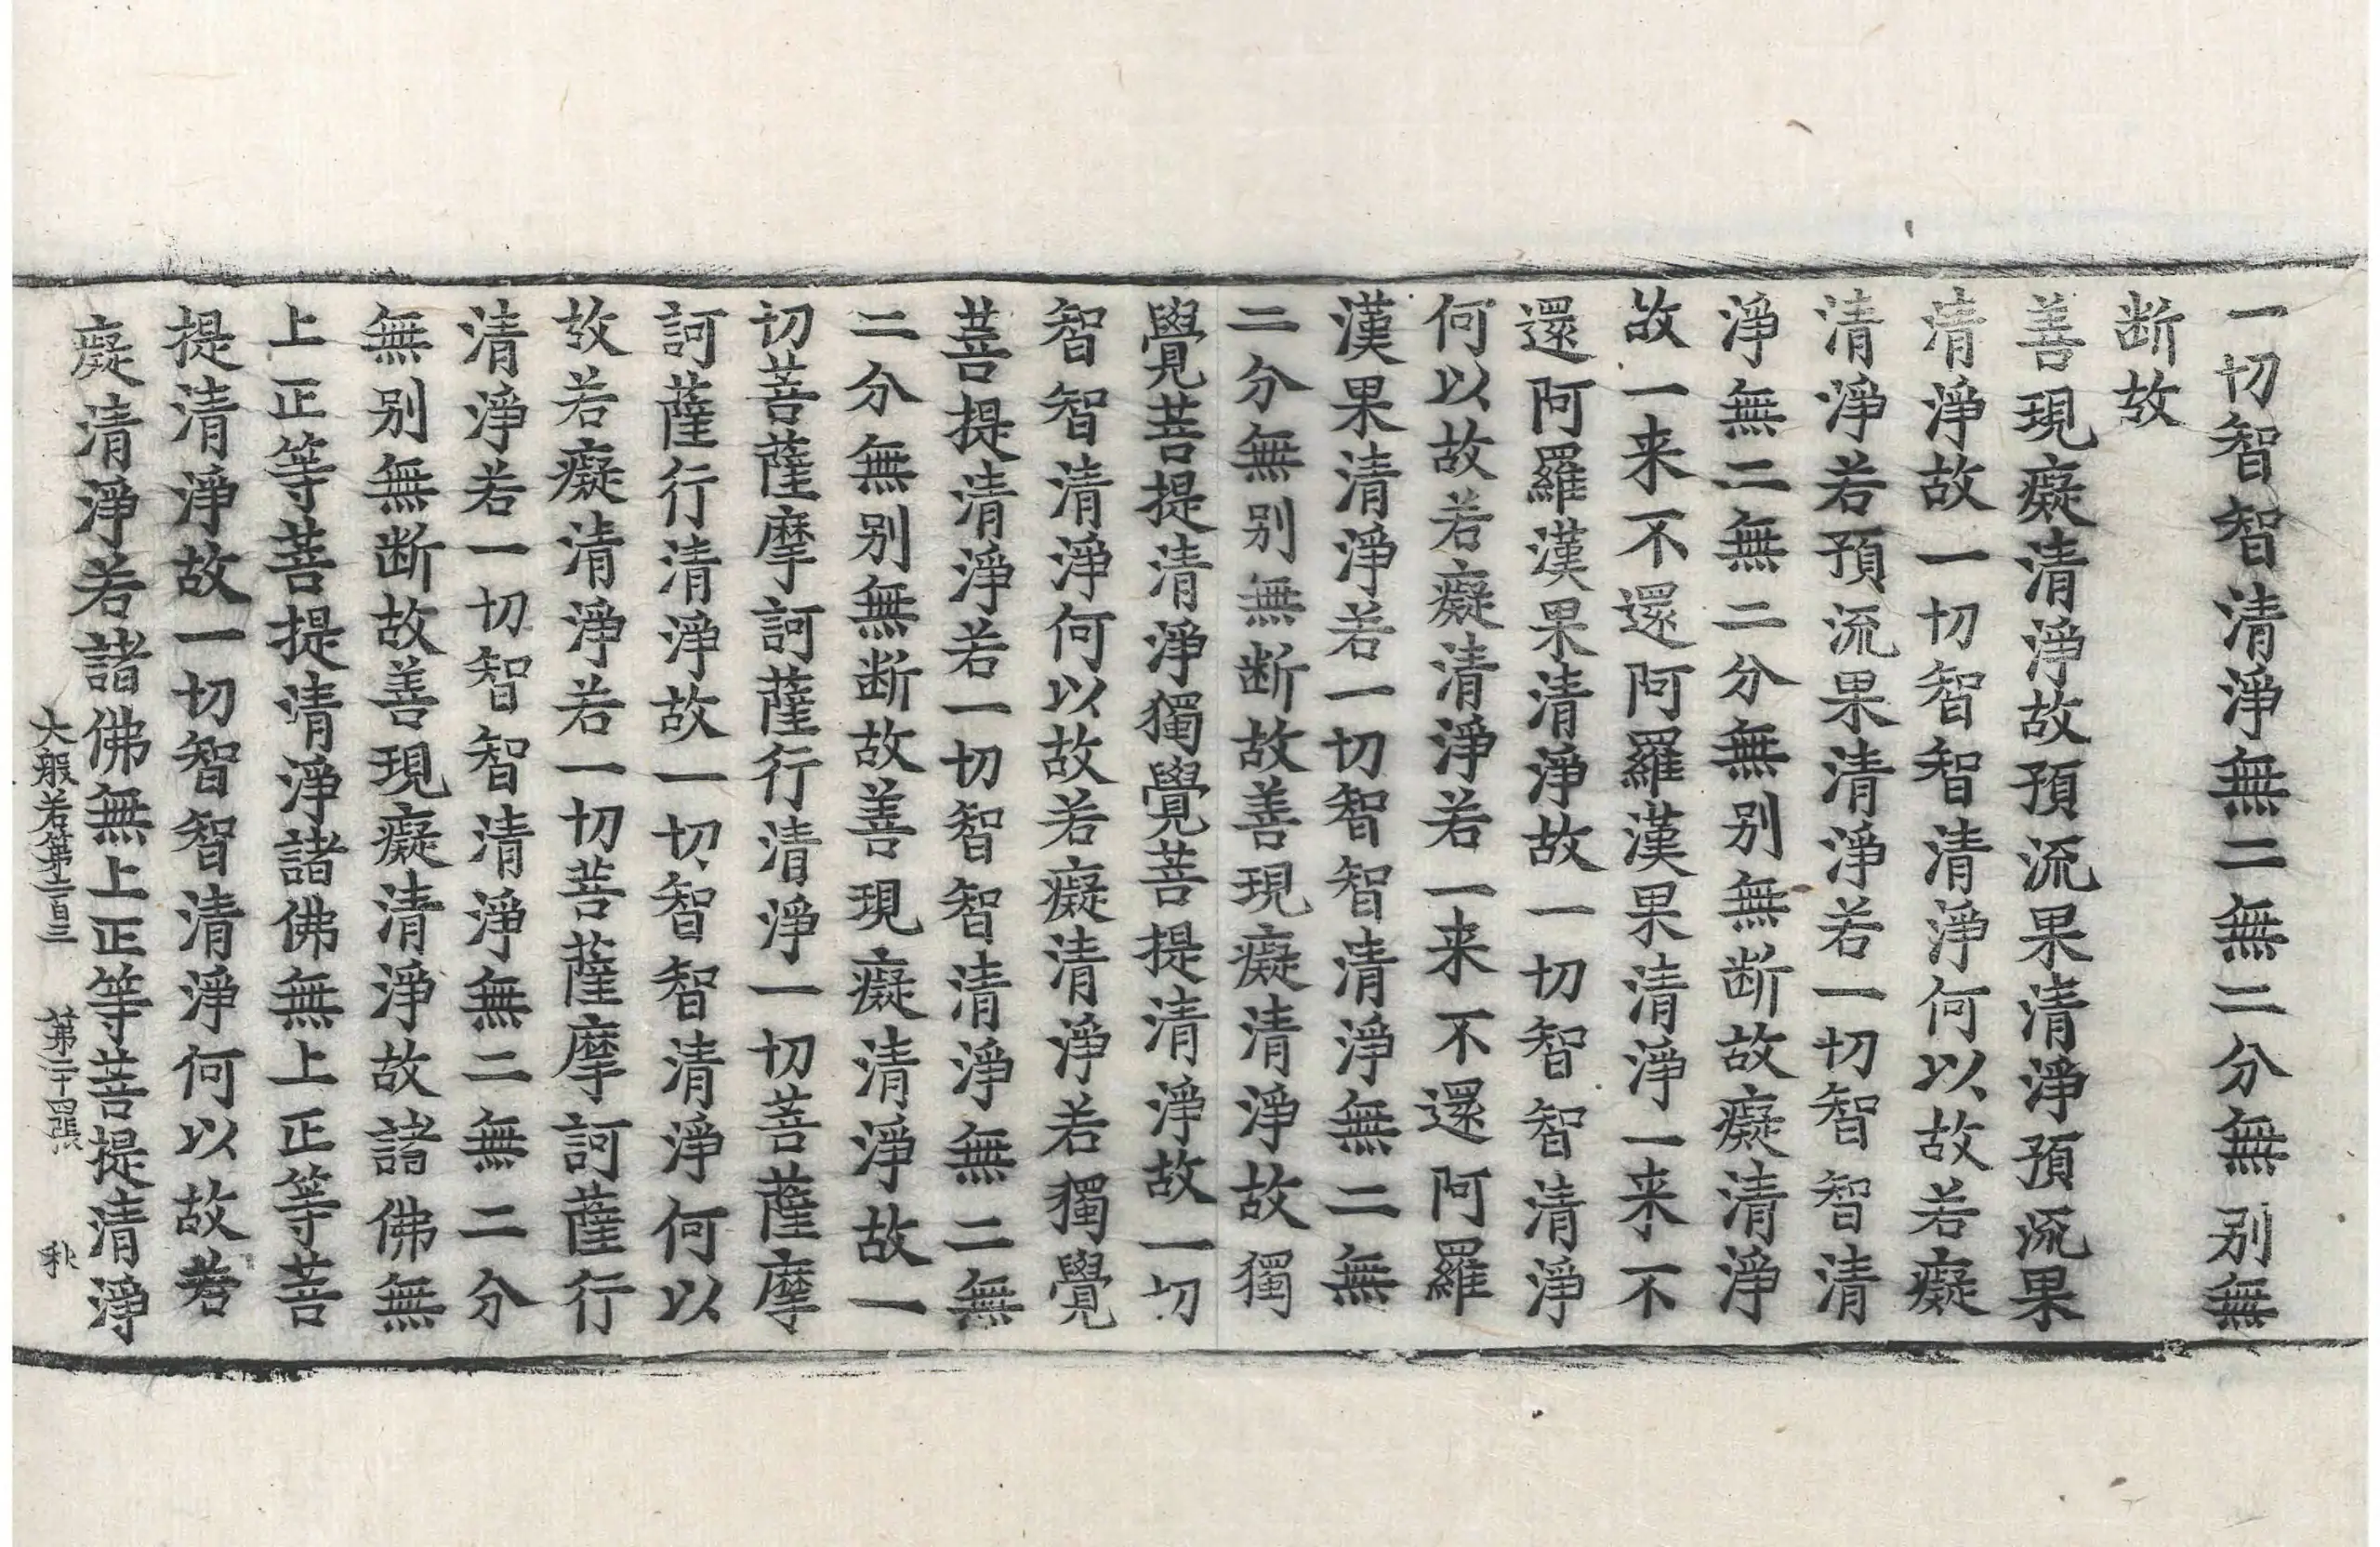 一切智智清淨無二無二分無别無
断故
善現癡清淨故預流果清淨預流果
清淨故一切智智清淨何以故若癡
清淨若預流果清淨若一切智智清
淨無二無二分無别無断故癡清淨
故一来不還阿羅漢果清淨一来不
還阿羅漢果清淨故一切智智清淨
何以故若癡清淨若一来不還阿羅
漢果清淨若一切智智清淨無二無
二分無别無断故善現癡清淨故獨
覺菩提清淨獨覺菩提清淨故一切
智智清淨何以故若癡清淨若獨覺
菩提清淨若一切智智清淨無二無
二分無别無断故善現癡清淨故一
切菩薩摩訶薩行清淨一切菩薩摩
訶薩行清淨故一切智智清淨何以
故若癡清淨若一切菩薩摩訶薩行
清淨若一切智智清淨無二無二分
無别無断故善現癡清淨故諸佛無
上正等菩提清淨諸佛無上正等菩
提清淨故一切智智清淨何以故若
癡清淨若諸佛無上正等菩提清淨
大般若第二百三 第二十四張 秋